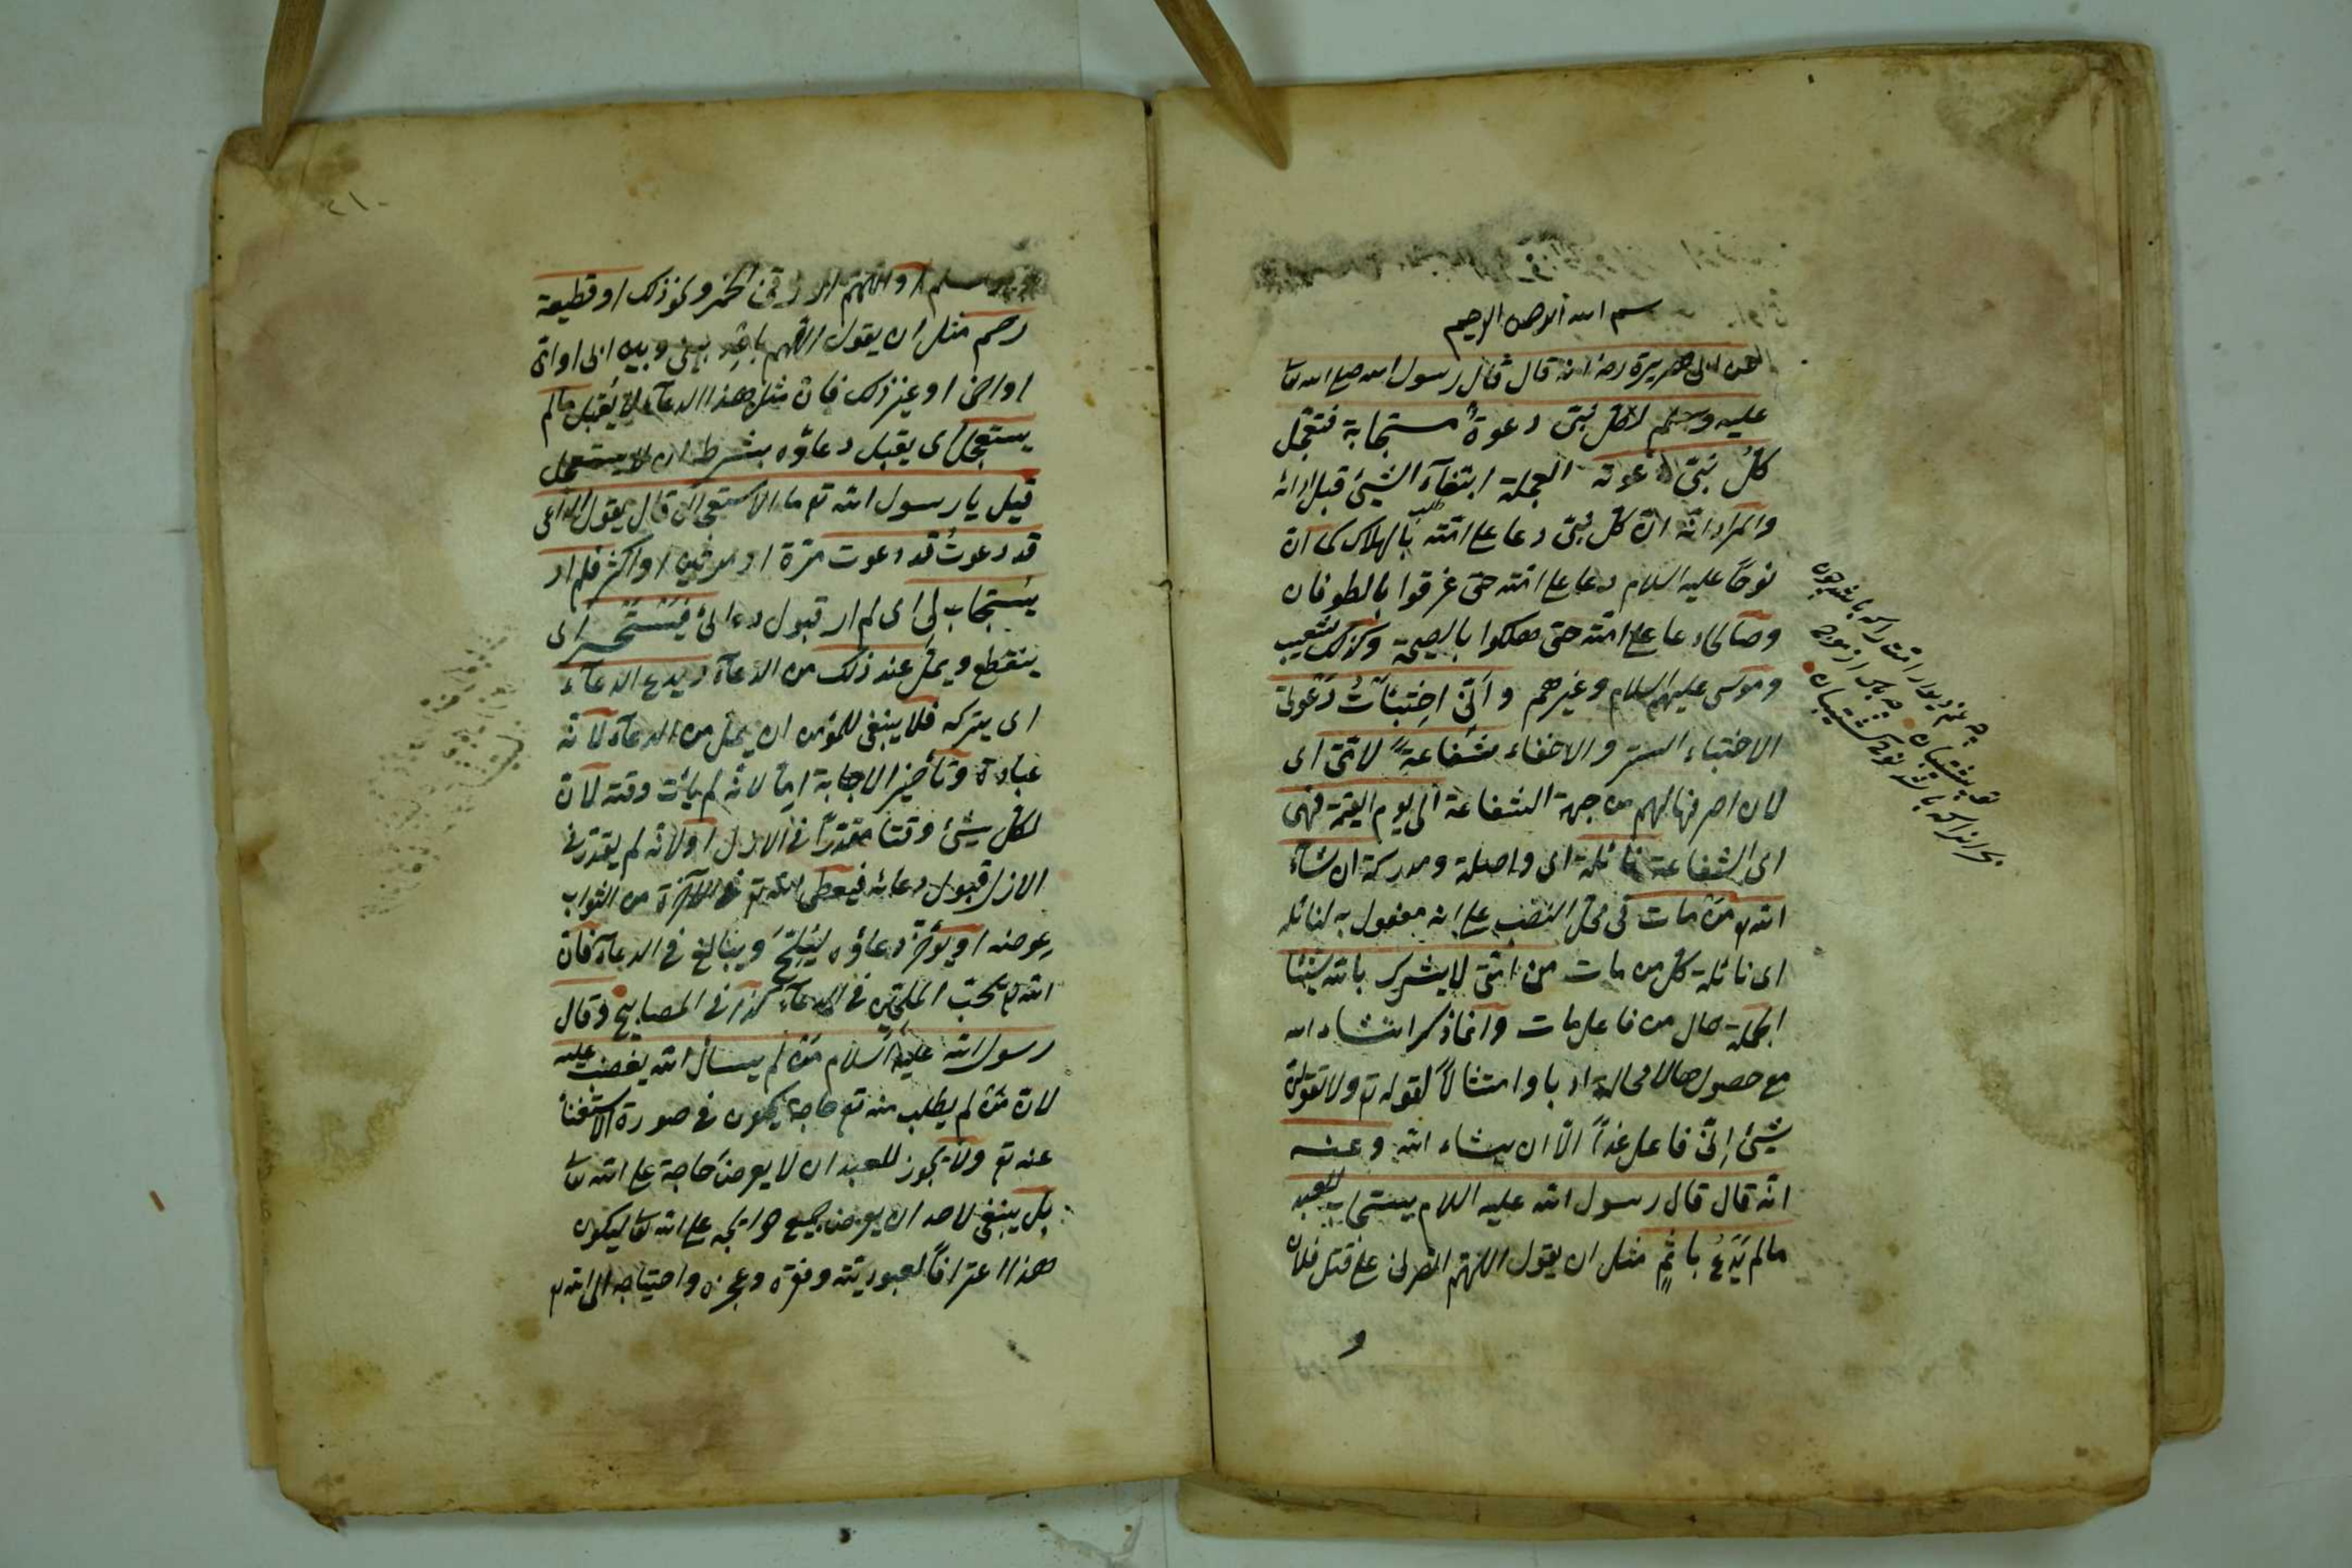 بسم الله الرحمن الرحيم
عن ابى هريرة رضه انه قال قال رسول الله صلى الله تعا
عليه وسلم لكل نبىّ دعوةٌ مستجابة فتعجّل
كلُ نبىّ دعوته العجلة ابتغآء الشيئ قبل اوانه
والمراد انّه انّ كلّ نبىّ دعا على امّته بالهلاك كما انّ
نوحًا عليه السلام دعا على امّته حتى غرقوا بالطوفان
وصالحا دعا على امّته حتى هلكوا بالصيحة وكذلك شعيب
وموسى عليهم السلام وغيرهم وانّى اختبئاتُ دَعْوتى
الاختباء الستر والاخفاء شفاعةً لامّتى اى
لان اصرفها لهم من جهة الشفاعة الى يوم القيمة فهى
اى الشفاعة نائلة اى واصلة ومدركة ان شآء
الله تع مَنْ مات فى محلّ النصب على انه مفعول به لنائله
اى نائلة كلّ من مات من امّتى لا يشرك بالله شيئا
الجملة حال من فاعل مات وانما ذكر انشاء الله
مع حصولها لا محالة ادبا وامتثالاً لقوله تع ولا تقولنّ
لشيئ إنّى فاعل غداً الّا ان يشاء الله وعنه
انّه قال قال رسول الله عليه السلام يستجاب للعبد
مالم يَدْعُ باثمٍ مثل ان يقول اللهمّ انصرنى على قتل فلان
و
چه غم ديوار امّت راكه باشد چون
تو پشتيبان چه باك از موج
بحر انراكه باشد نوح كشتيبان
٢١٠
او اللهم ارزقنى الخمر ونحو ذلك او قطيعة
رحم مثل ان يقول اللهم باعد بينى وبين ابى او امّى
او اخى او غير ذلك فانّ مثل هذا الدعآء لا يُقبل مالم
يستعجل اى يقبل دعاؤه بشرط ان لا يستعجل
قيل يا رسول الله تع ما الاستعجال قال يقول الداعى
قد دعوتُ قد دعوت مرّة او مرتين او اكثر فلم ار
يستجاب لى اى لم ار قبول دعائى فيَسْتَحْسِر اى
ينقطع ويملّ عند ذلك من الدعآء ويدع الدعآء
اى يتركه فلا ينبغى للمؤمن ان يملّ من الدعآء لانّه
عبادة وتأخير الاجابة امّا لانّه لم يأت وقته لانّ
لكلّ شيئ وقتا مقدّراً فى الازل اولانّه لم يقدّر فى
الازل قبول دعائه فيعطى الله تع فى الآخرة من الثواب
عوضه او يؤخّر دعاؤه ليُلِحَّ ويبالغ فى الدعآء فانّ
الله تع يحبّ الملحّين فى الدعآء كذا فى المصابيح وقال
رسول الله عليه السلام مَنْ لم يسأل الله يغضب عليه
لانّ مَنْ لم يطلب منه تع حاجة يكون فى صورة الاستغنآ
عنه تع ولا يجوز للعبد ان لا يعرض حاجة على الله تعا
بل ينبغى لاحد ان يعرض جميع حوايجه على الله تعا ليكون
هذا اعترافاً لعبوديّته وفقره وعجزه واحتياجه الى الله تع